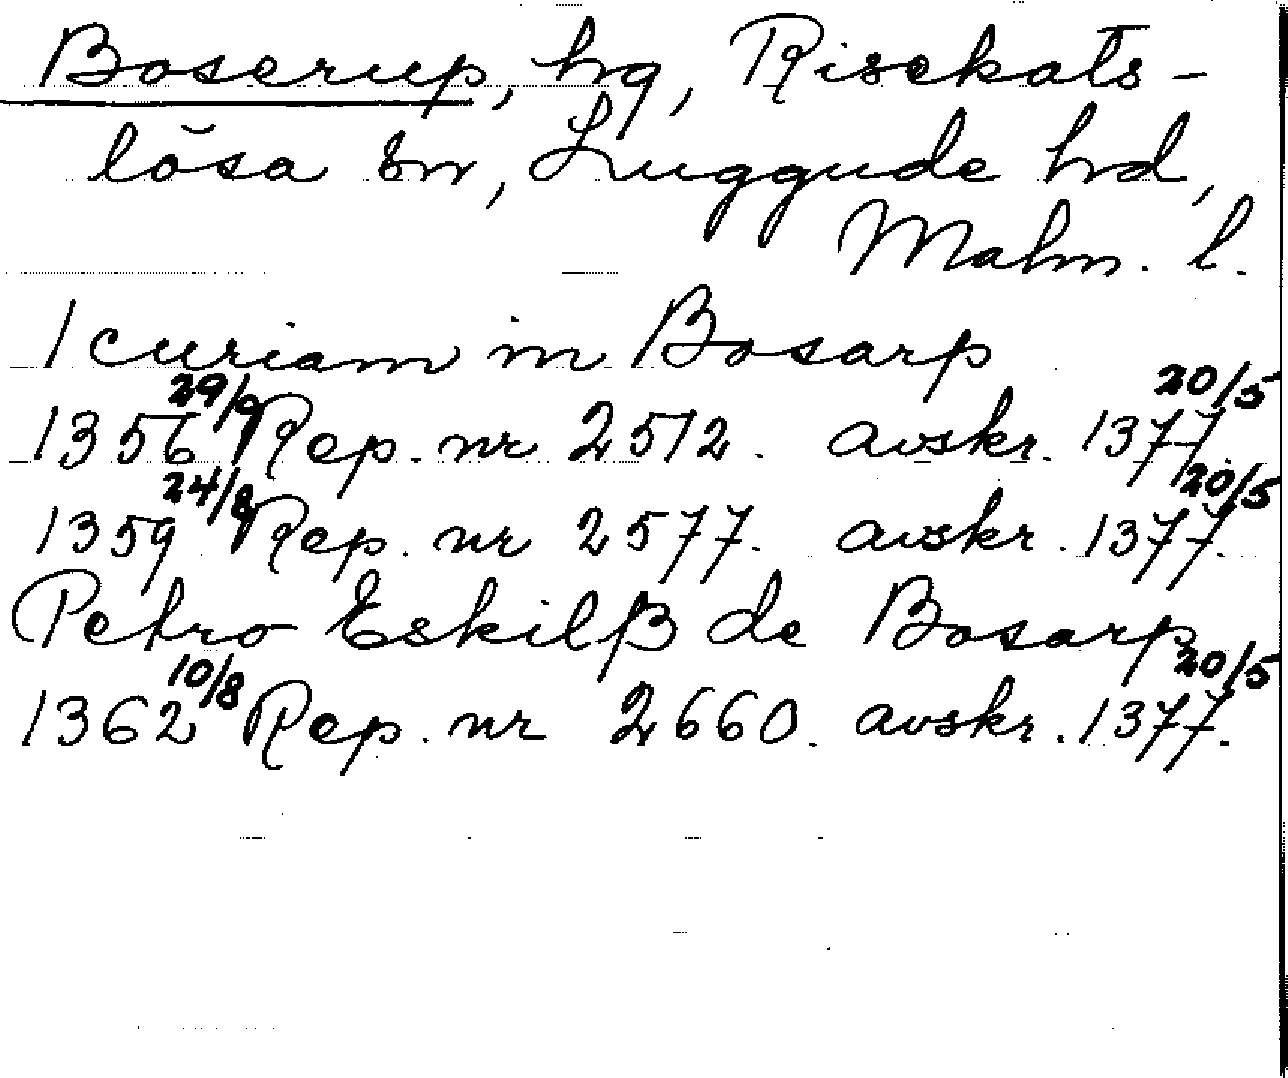 Boserup, hg, Risekats-
lösa sn, Luggude hd,
Malm. l.
1 curiam in Bosarp
1356 29/9 Rep. nr 2512. avskr. 1377 20/5
1359 24/8 Rep. nr 2577. avskr. 1377 20/5
Petro Eskilß de Bosarp
1362 10/8 Rep. nr 2660. avskr. 1377 20/5.